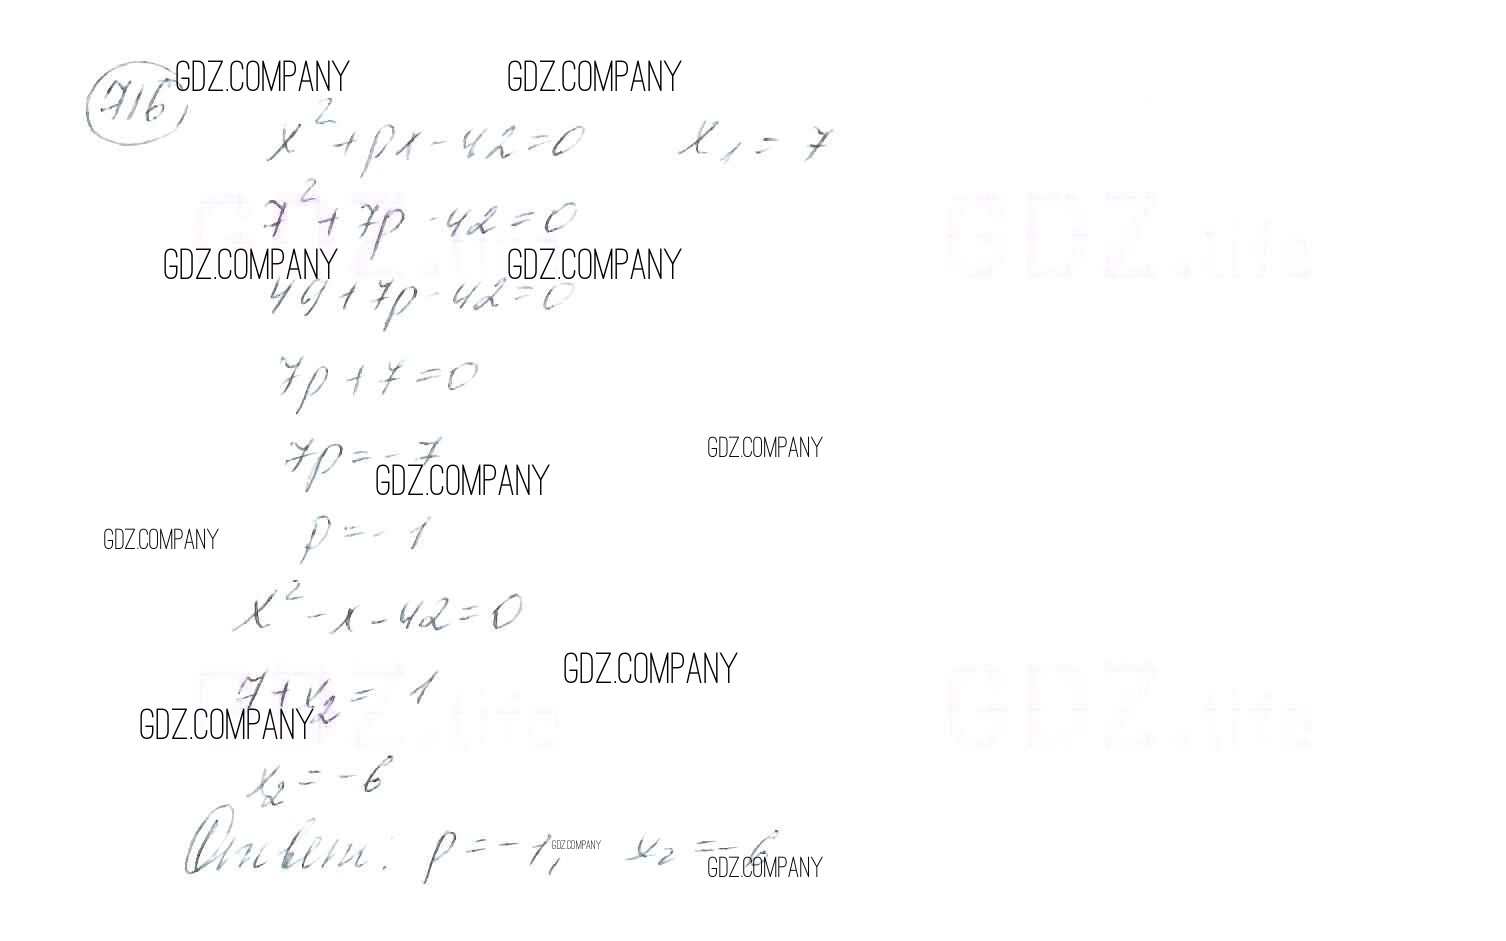 716 GDZ.COMPANY GDZ.COMPANY
x² + px - 42 = 0 x₁ = 7
7² + 7p - 42 = 0
GDZ.life GDZ.life
GDZ.COMPANY GDZ.COMPANY
49 + 7p - 42 = 0
7p + 7 = 0
7p = -7 GDZ.COMPANY
GDZ.COMPANY
GDZ.COMPANY p = -1
x² - x - 42 = 0
GDZ.COMPANY
7 + x₂ = 1
GDZ.life GDZ.life
GDZ.COMPANY
x₂ = -6
Ответ: p = -1, GDZ.COMPANY x₂ = -6
GDZ.COMPANY